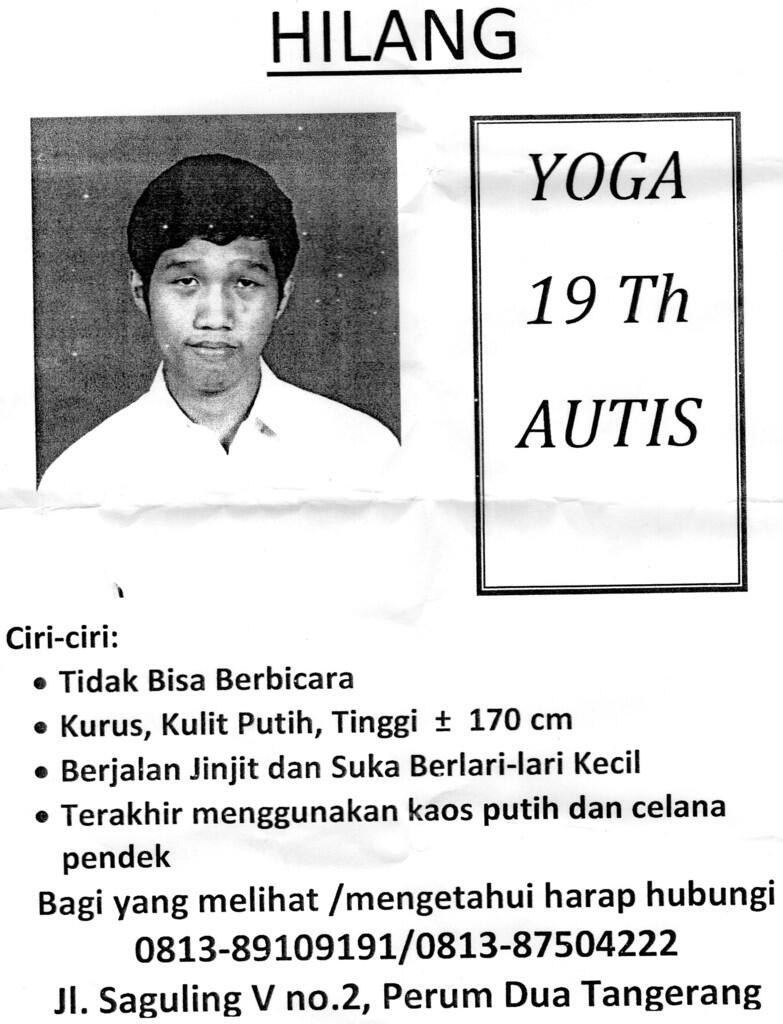 HILANG
YOGA
19 Th
AUTIS
Ciri-ciri:
• Tidak Bisa Berbicara
• Kurus, Kulit Putih, Tinggi ± 170 cm
• Berjalan Jinjit dan Suka Berlari-lari Kecil
• Terakhir menggunakan kaos putih dan celana
pendek
Bagi yang melihat /mengetahui harap hubungi
0813-89109191/0813-87504222
Jl. Saguling V no.2, Perum Dua Tangerang